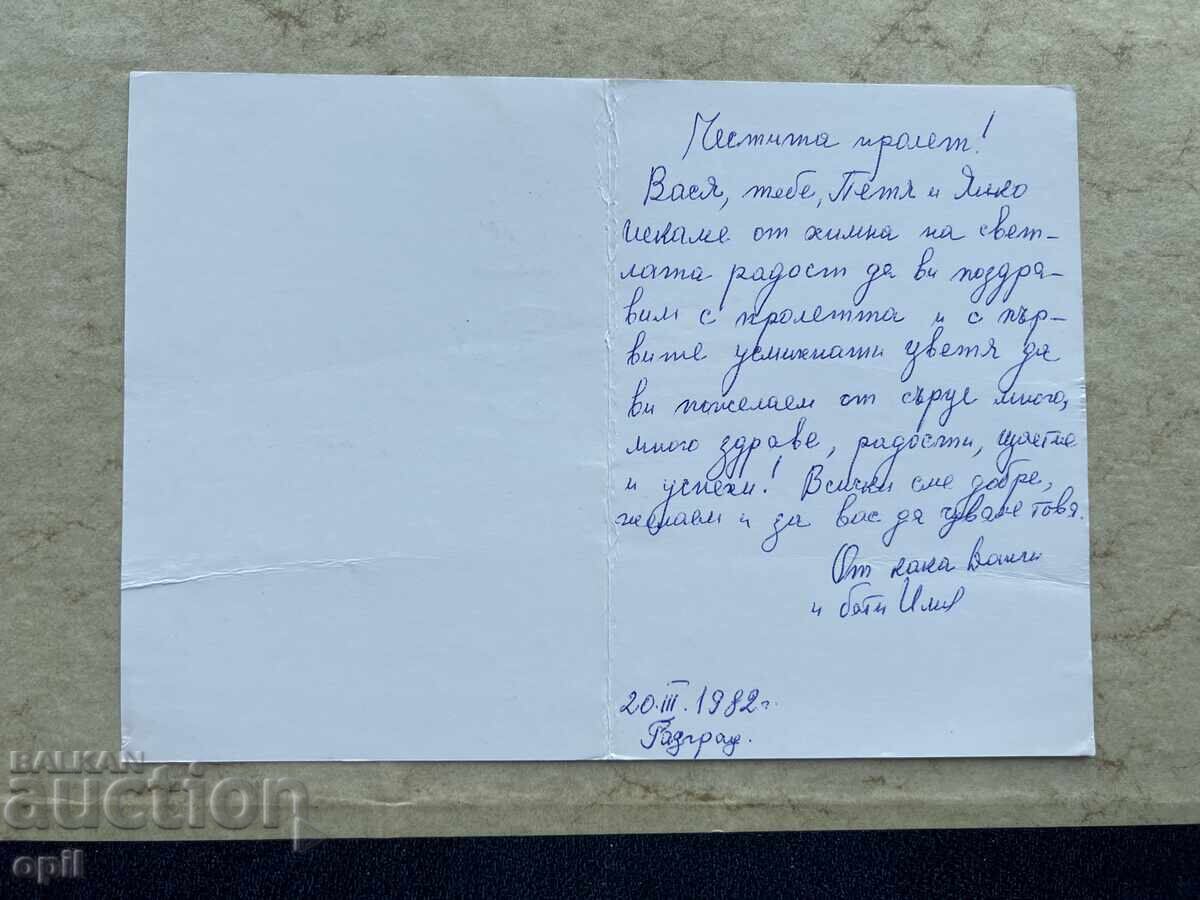 Честита пролет!
Вася, тебе, Петя и Янко
искаме от химна на свет-
лата радост да ви поздра-
вим с пролетта и с пър-
вите усмихнати цветя да
ви пожелаем от сърце много,
много здраве, радости, щастие
и успехи! Всички сме добре,
желаем и за вас да чуваме това.
От кака
и бати Илия
20.III.1982г.
Разград.
BALKAN
auction
opil